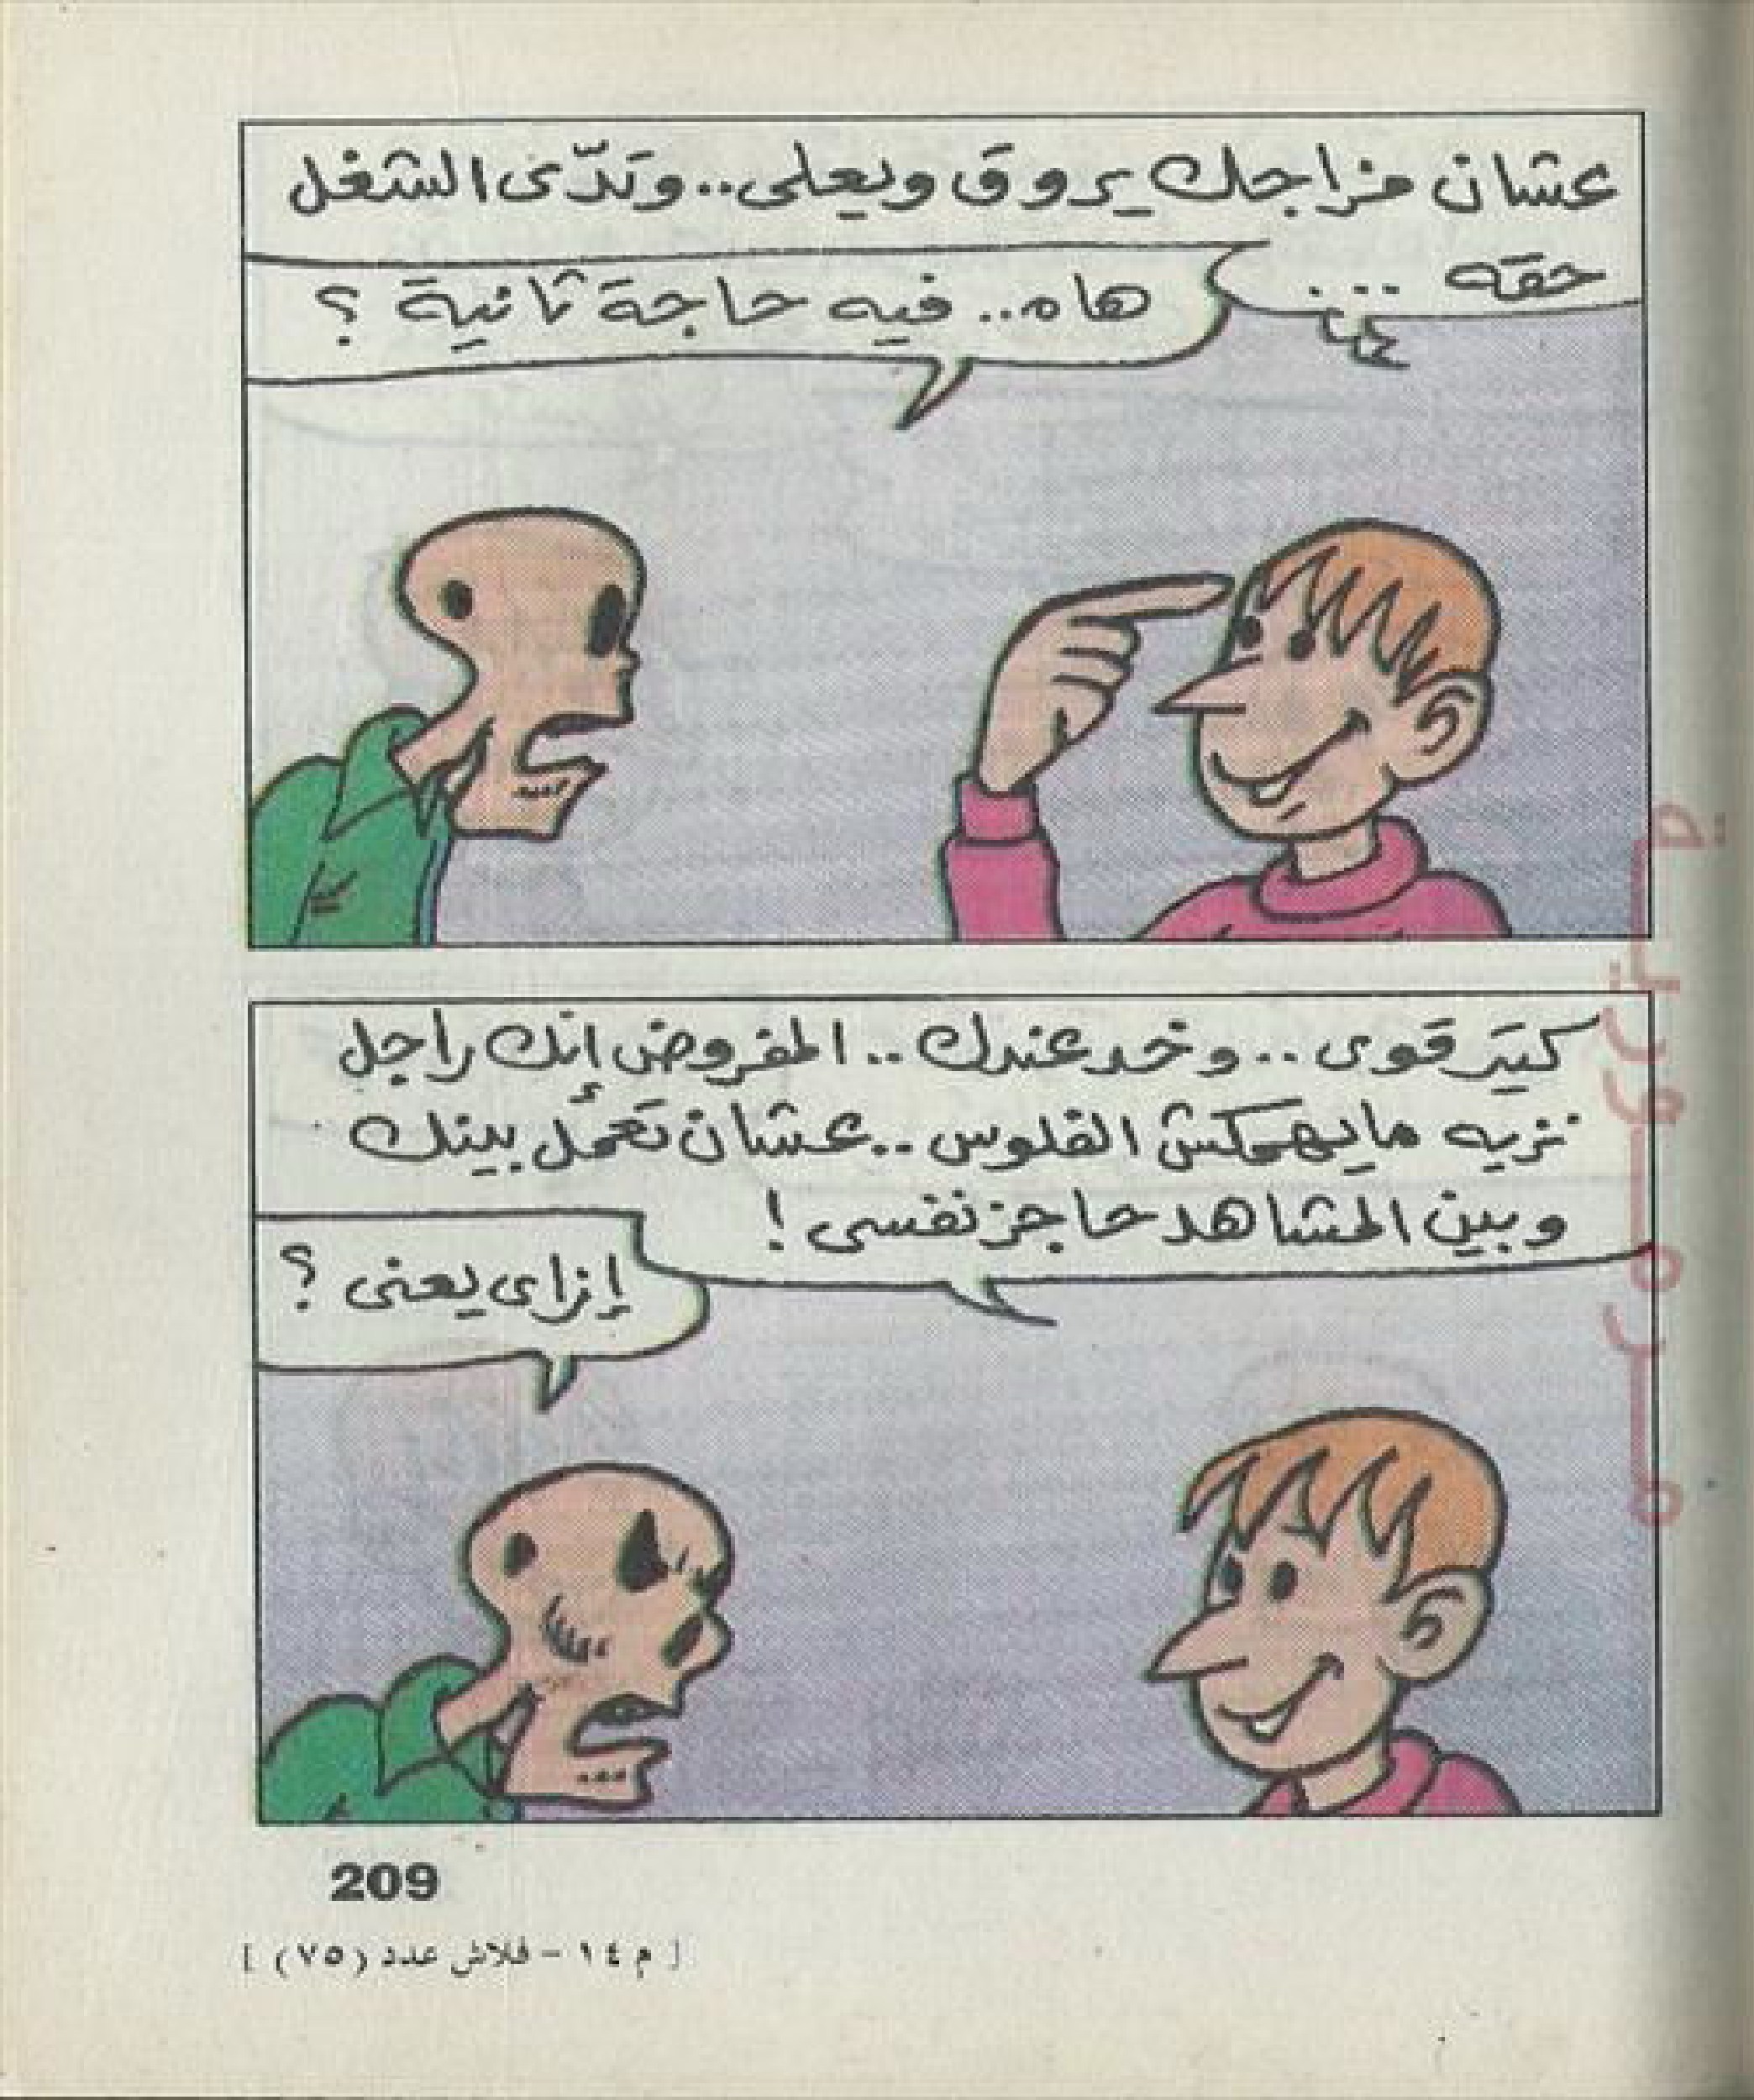 عشان مزاجك يروق ويعلى.. وتدّى الشغل
حقه ...
هاه.. فيه حاجة تانية ؟
كتير قوى .. وخد عندك .. المفروض إنك راجل
نزيه مايهمكش الفلوس .. عشان تعمل بينك
وبين المشاهد حاجز نفسى !
إزاى يعنى ؟
209
[ م ١٤ - فلاش عدد (٧٥) ]